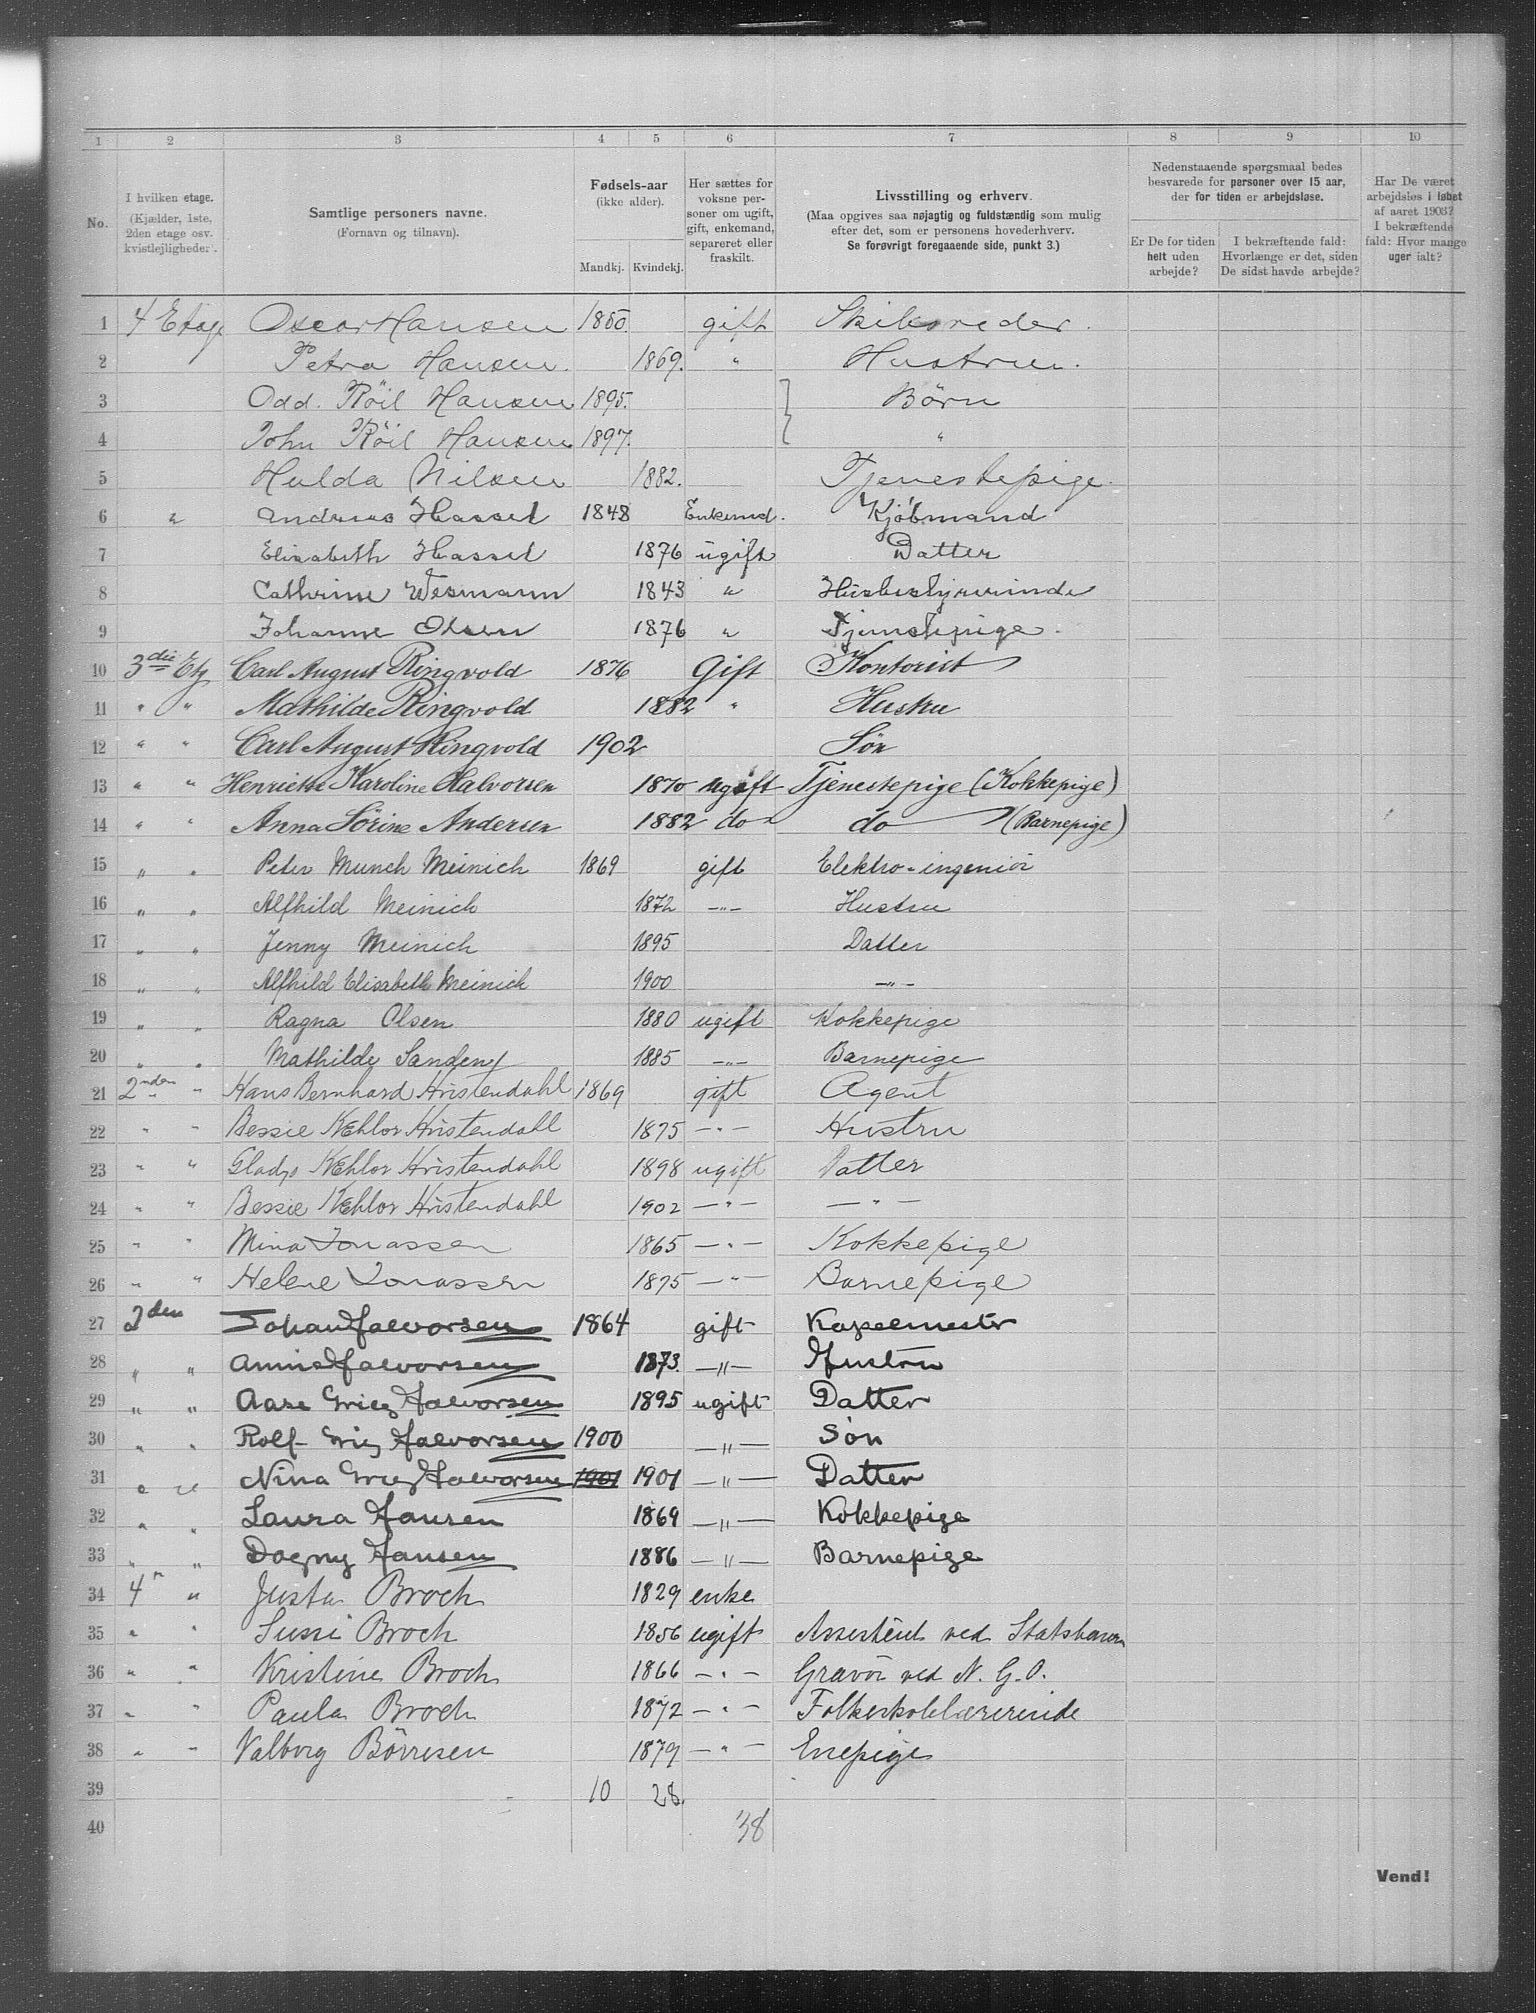 1 2 3 4 5 6 7 8 9 10
No.
I hvilken etage.
(Kjælder, 1ste,
2den etage osv.
kvistlejligheder.
Samtlige personers navne.
(Fornavn og tilnavn).
Fødsels-aar
(ikke alder).
Mandkj. Kvindekj.
Her sættes for
voksne per-
soner om ugift,
gift, enkemand,
separeret eller
fraskilt.
Livsstilling og erhverv.
(Maa opgives saa nøjagtig og fuldstændig som mulig
efter det, som er personens hovederhverv.
Se forøvrigt foregaaende side, punkt 3.)
Nedenstaaende spørgsmaal bedes
besvarede for personer over 15 aar,
der for tiden er arbejdsløse.
Er De for tiden
helt uden
arbejde?
I bekræftende fald:
Hvorlænge er det, siden
De sidst havde arbejde?
Har De været
arbejdsløs i løbet
af aaret 1903?
I bekræftende
fald: Hvor mange
uger ialt?
1 4 Etage Oscar Hansen gift Skibsreder.
2 Petra Hansen. 1869. " Hustru.
3 Odd. Röil Hansen 1895. Börn
4 John Röil Hansen 1897. "
5 Hulda Nilsen 1882. Tjenestepige.
6 " Andreas Hassel 1848 Enkemd. Kjöbmand
7 Elisabeth Hassel 1876 ugift Datter
8 Cathrine Wesmann 1843 " Husbestyrerinde
9 Johanne Olsen 1876 " Tjenestepige.
10 3die Etg Carl August Ringvold 1876 Gift Kontorist
11 " " Mathilde Ringvold 1882 " Hustru
12 " " Carl August Ringvold 1902 Sön
13 " " Henriette Karoline Halvorsen 1870 ugift Tjenestepige (Kokkepige)
14 " " Anna Sörine Andersen 1882 do do (Barnepige)
15 " " Peter Munch Meinich 1869 gift Elektro-ingeniör
16 " " Alfhild Meinich 1872 -"- Hustru
17 " " Jenny Meinich 1895 Datter
18 " " Alfhild Elisabeth Meinich 1900 -"-
19 " " Ragna Olsen 1880 ugift Kokkepige
20 " " Mathilde 1885 -"- Barnepige
21 2nden " Hans Bernhard Kristendahl 1869 gift Agent
22 " " Bessie Kehlor Kristendahl 1875 -"- Hustru
23 " " Gladys Kehlor Kristendahl 1898 ugift Datter
24 " " Bessie Kehlor Kristendahl 1902 -"- -"-
25 " " Mina Jonassen 1865 -"- Kokkepige
26 " " Helene Jonassen 1875 -"- Barnepige
27 2den Johan Halvorsen 1864 gift Kapelmester
28 " " Annie Halvorsen 1873. -"- Hustru
29 " " Aase Grieg Halvorsen 1895 ugift Datter
30 " " Rolf Grieg Halvorsen 1900 -"- Sön
31 " " Nina Grieg Halvorsen 1901 1901 -"- Datter
32 " " Laura Hansen 1869 -"- Kokkepige
33 " " Dagny Hansen 1886 -"- Barnepige
34 4 " Justa Broch 1829 enke
35 " " Sussi Broch 1856 ugift Assistent ved
36 " " Kristine Broch 1866 -"- Gravör ved N. G. O.
37 " " Paula Broch 1872 -"- Folkeskolelærerinde
38 " " Valborg Börresen 1879 -"- Enepige
39 10 28.
40 38
Vend!